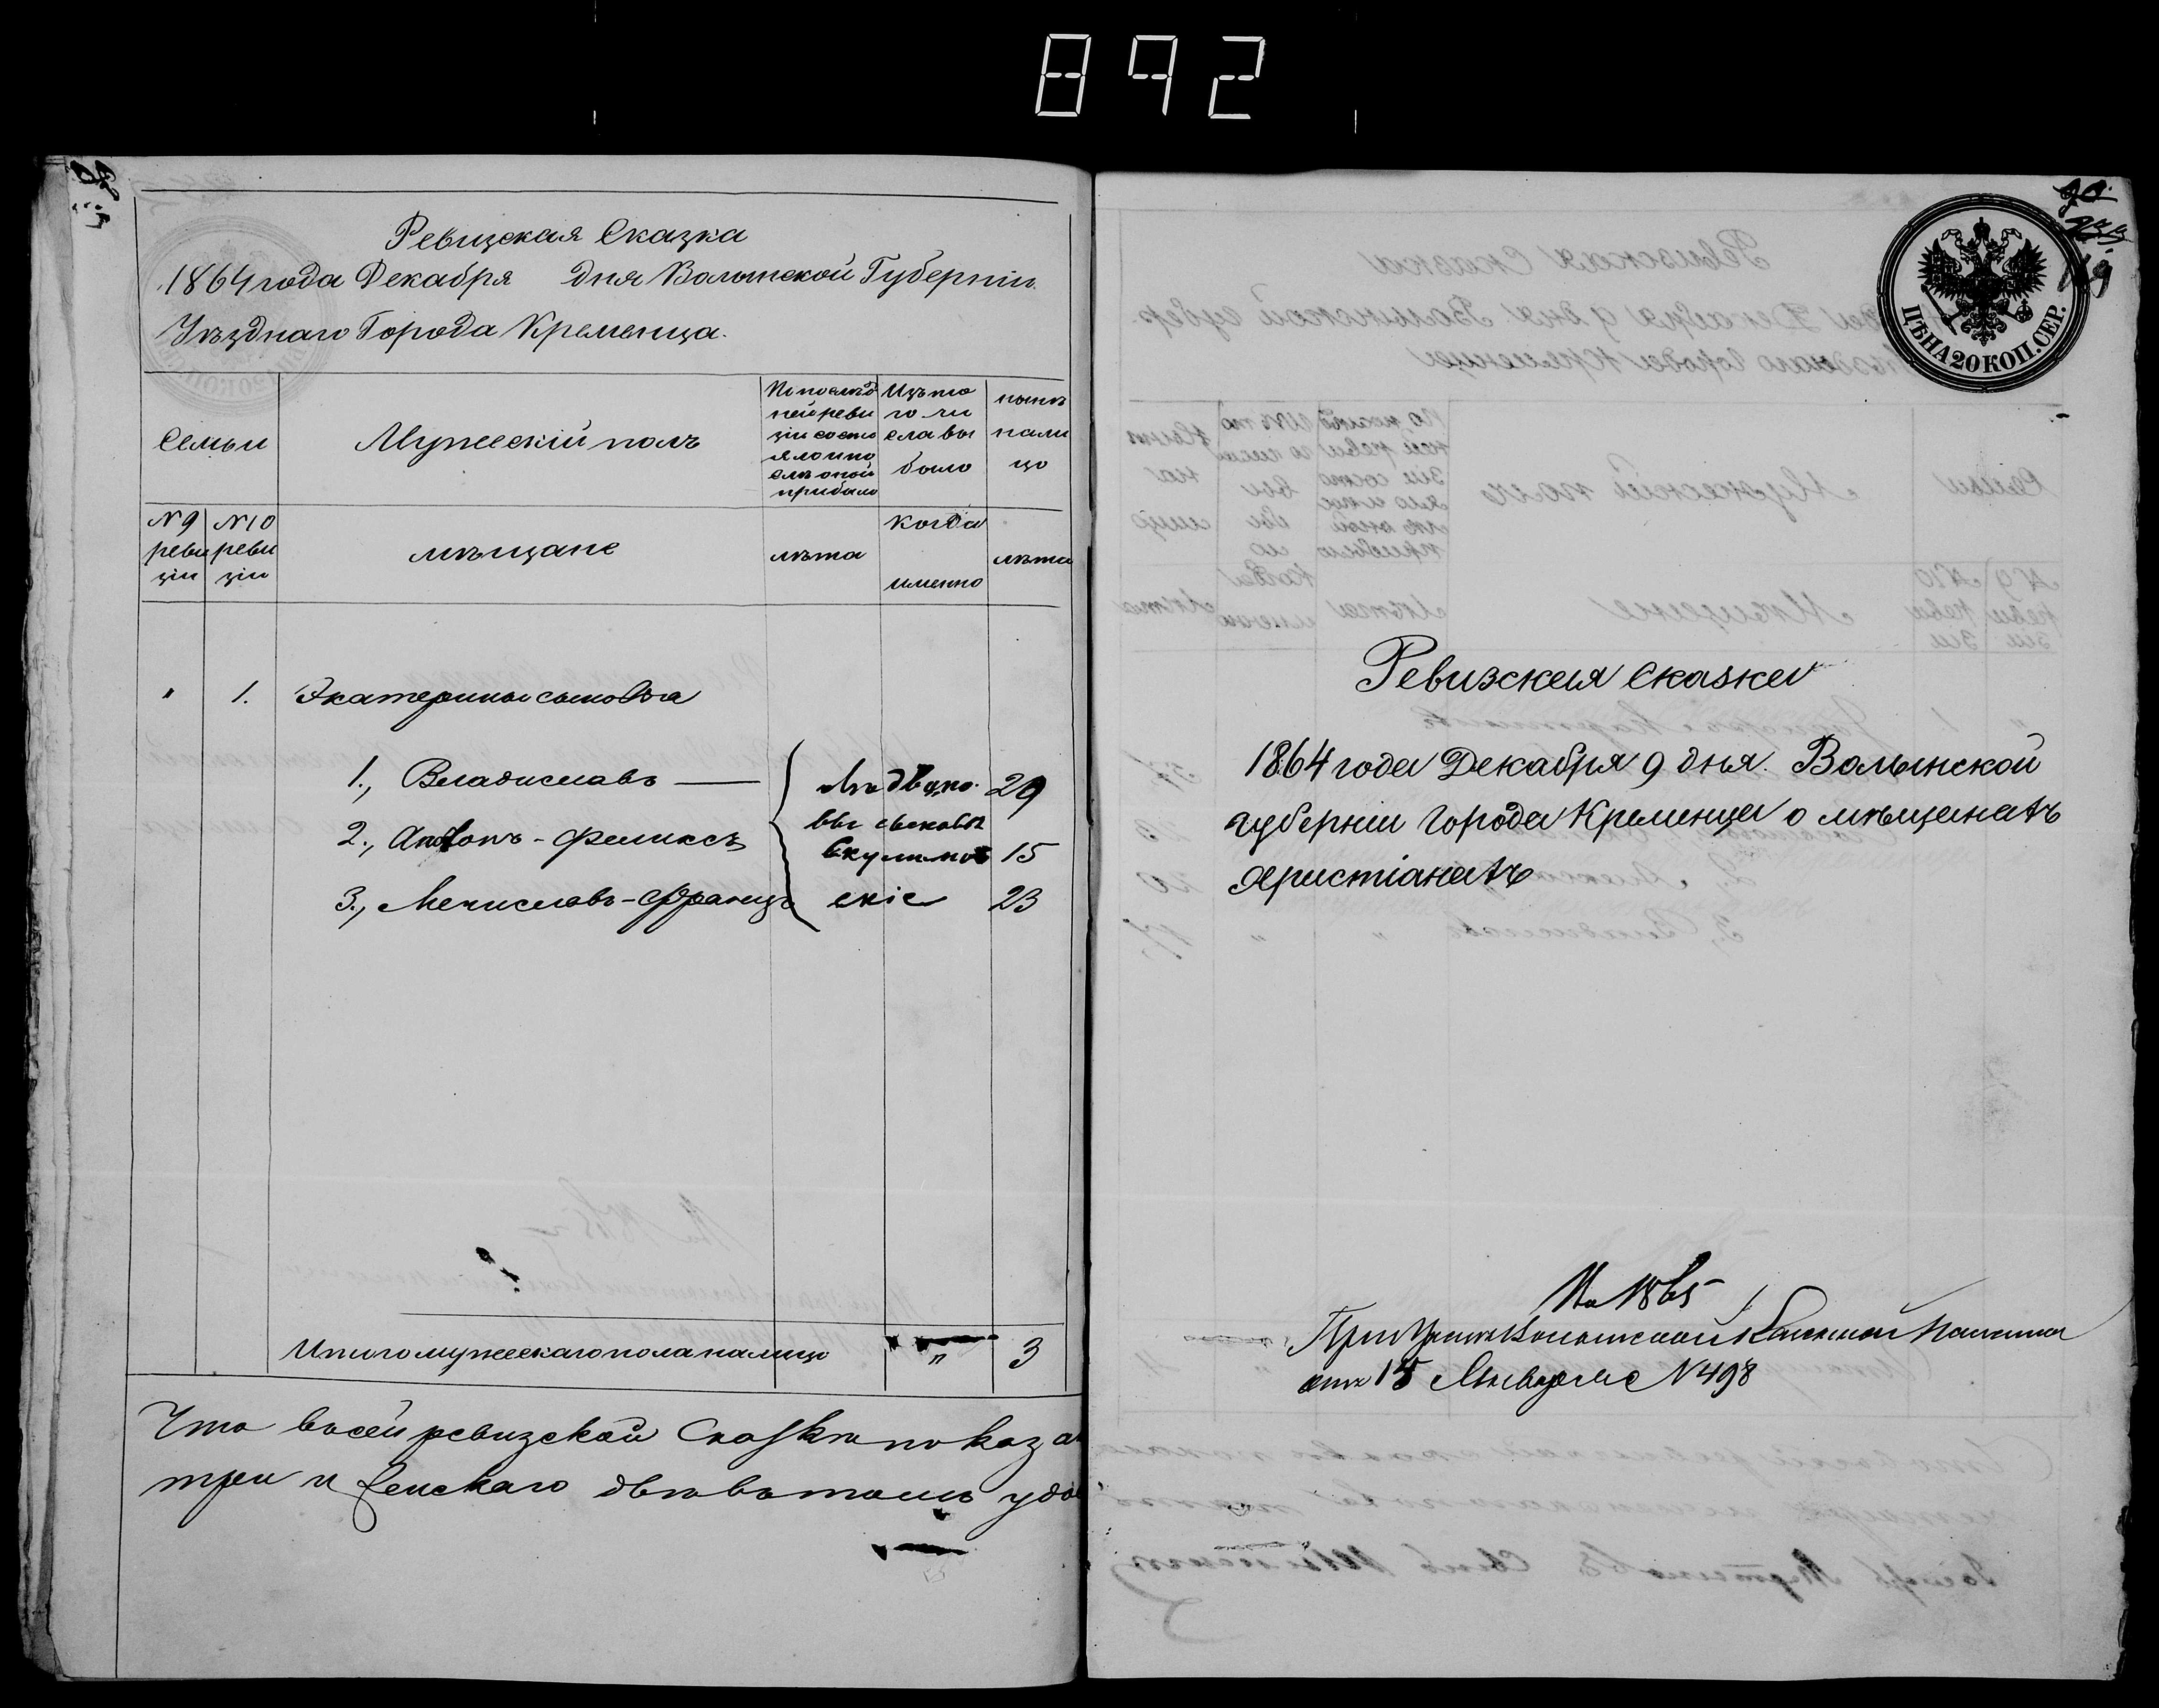 892
Ревизская Сказка
1864 года Декабря дня Волынской Губерніи
Уѣзднаго Города Кременца.
Семьи
Мужескій полъ
По послѣд
ней реви
зіи состо
яло и по
слѣ оной
прибыло
Изъ то
го чи
сла вы
было
нынѣ
нали
цо
N 9
реви
зіи
N 10
реви
зіи
мѣщане
лѣта
когда
именно
лѣта
" 1. Екатерины сыновья
1., Владиславъ — 29
2., Антонъ - Феликсъ 15
3., Мечиславъ - Францъ 23
скіе
Итого мужескаго пола налицо " 3
Что въ сей ревизской Сказкѣ показа
три и женскаго двѣ въ томъ удо
ЦѢНА 20 КОП. СЕР.
Ревизская сказка
1864 года Декабря 9 дня. Волынской
губерніи города Кременца о мѣщанахъ
христіанахъ
На 1865
При Указѣ Волынской Казенной Палаты
отъ 15 Января N 498